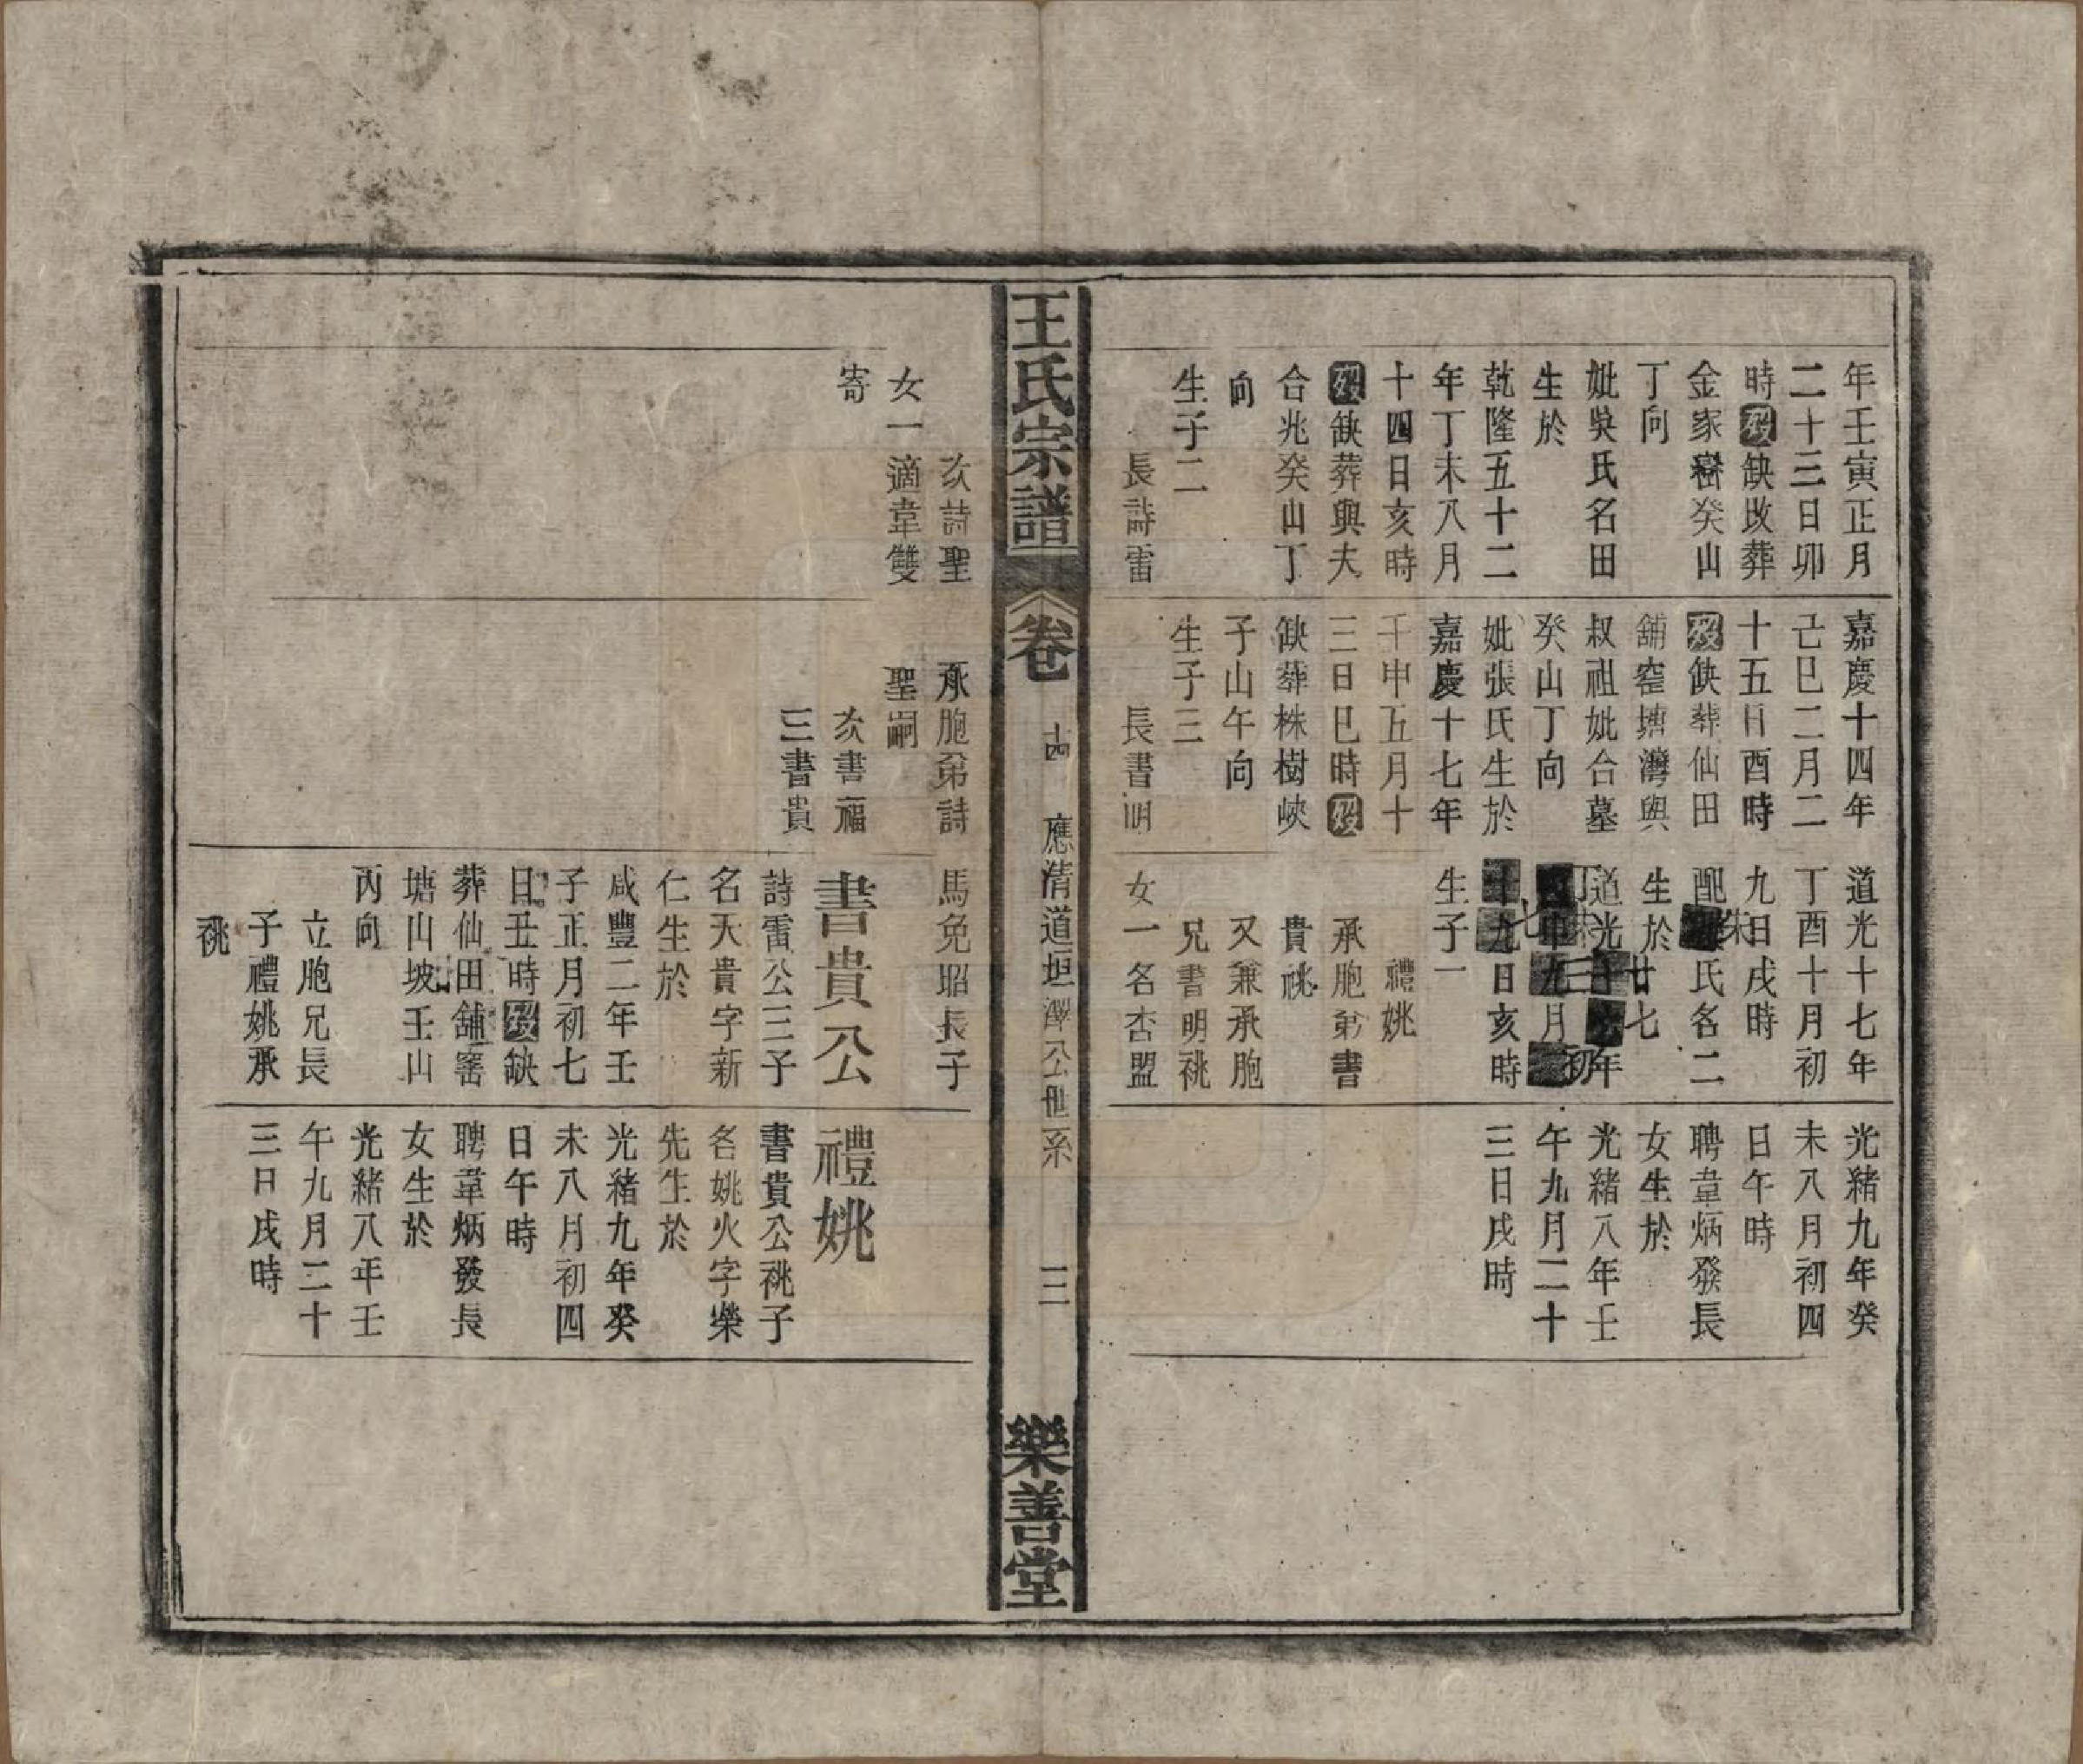 年壬寅正月
二十三日卯
時歿缺改葬
金家樹癸山
丁向
妣吳氏名田
生於
乾隆五十二
年丁未八月
十四日亥時
歿缺葬與夫
合兆癸山丁
向
生子二
長詩雷
嘉慶十四年
己巳二月二
十五日酉時
歿缺葬仙田
舖窑塘灣與
叔祖妣合墓
癸山丁向
妣張氏生於
嘉慶十七年
壬申五月十
三日巳時歿
缺葬株樹峽
子山午向
生子三
長書明
道光十七年
丁酉十月初
九日戌時
配朱氏名二
生於廿七
道光年
月初
日亥時
生子一
禮姚
承胞弟書
貴祧
又兼承胞
兄書明祧
女一名杏盟
光緒九年癸
未八月初四
日午時
聘韋炳發長
女生於
光緒八年壬
午九月二十
三日戌時
王氏宗譜
卷
十四
應清道坦澤公世系
三
樂善堂
次詩聖
女一適韋雙
寄
承胞弟詩
聖嗣
次書福
三書貴
馬免昭長子
書貴公
詩雷公三子
名天貴字新
仁生於
咸豐二年壬
子正月初七
日丑時歿缺
葬仙田舖窰
塘山坡壬山
丙向
立胞兄長
子禮姚承
祧
禮姚
書貴公祧子
名姚火字樂
先生於
光緒九年癸
未八月初四
日午時
聘韋炳發長
女生於
光緒八年壬
午九月二十
三日戌時